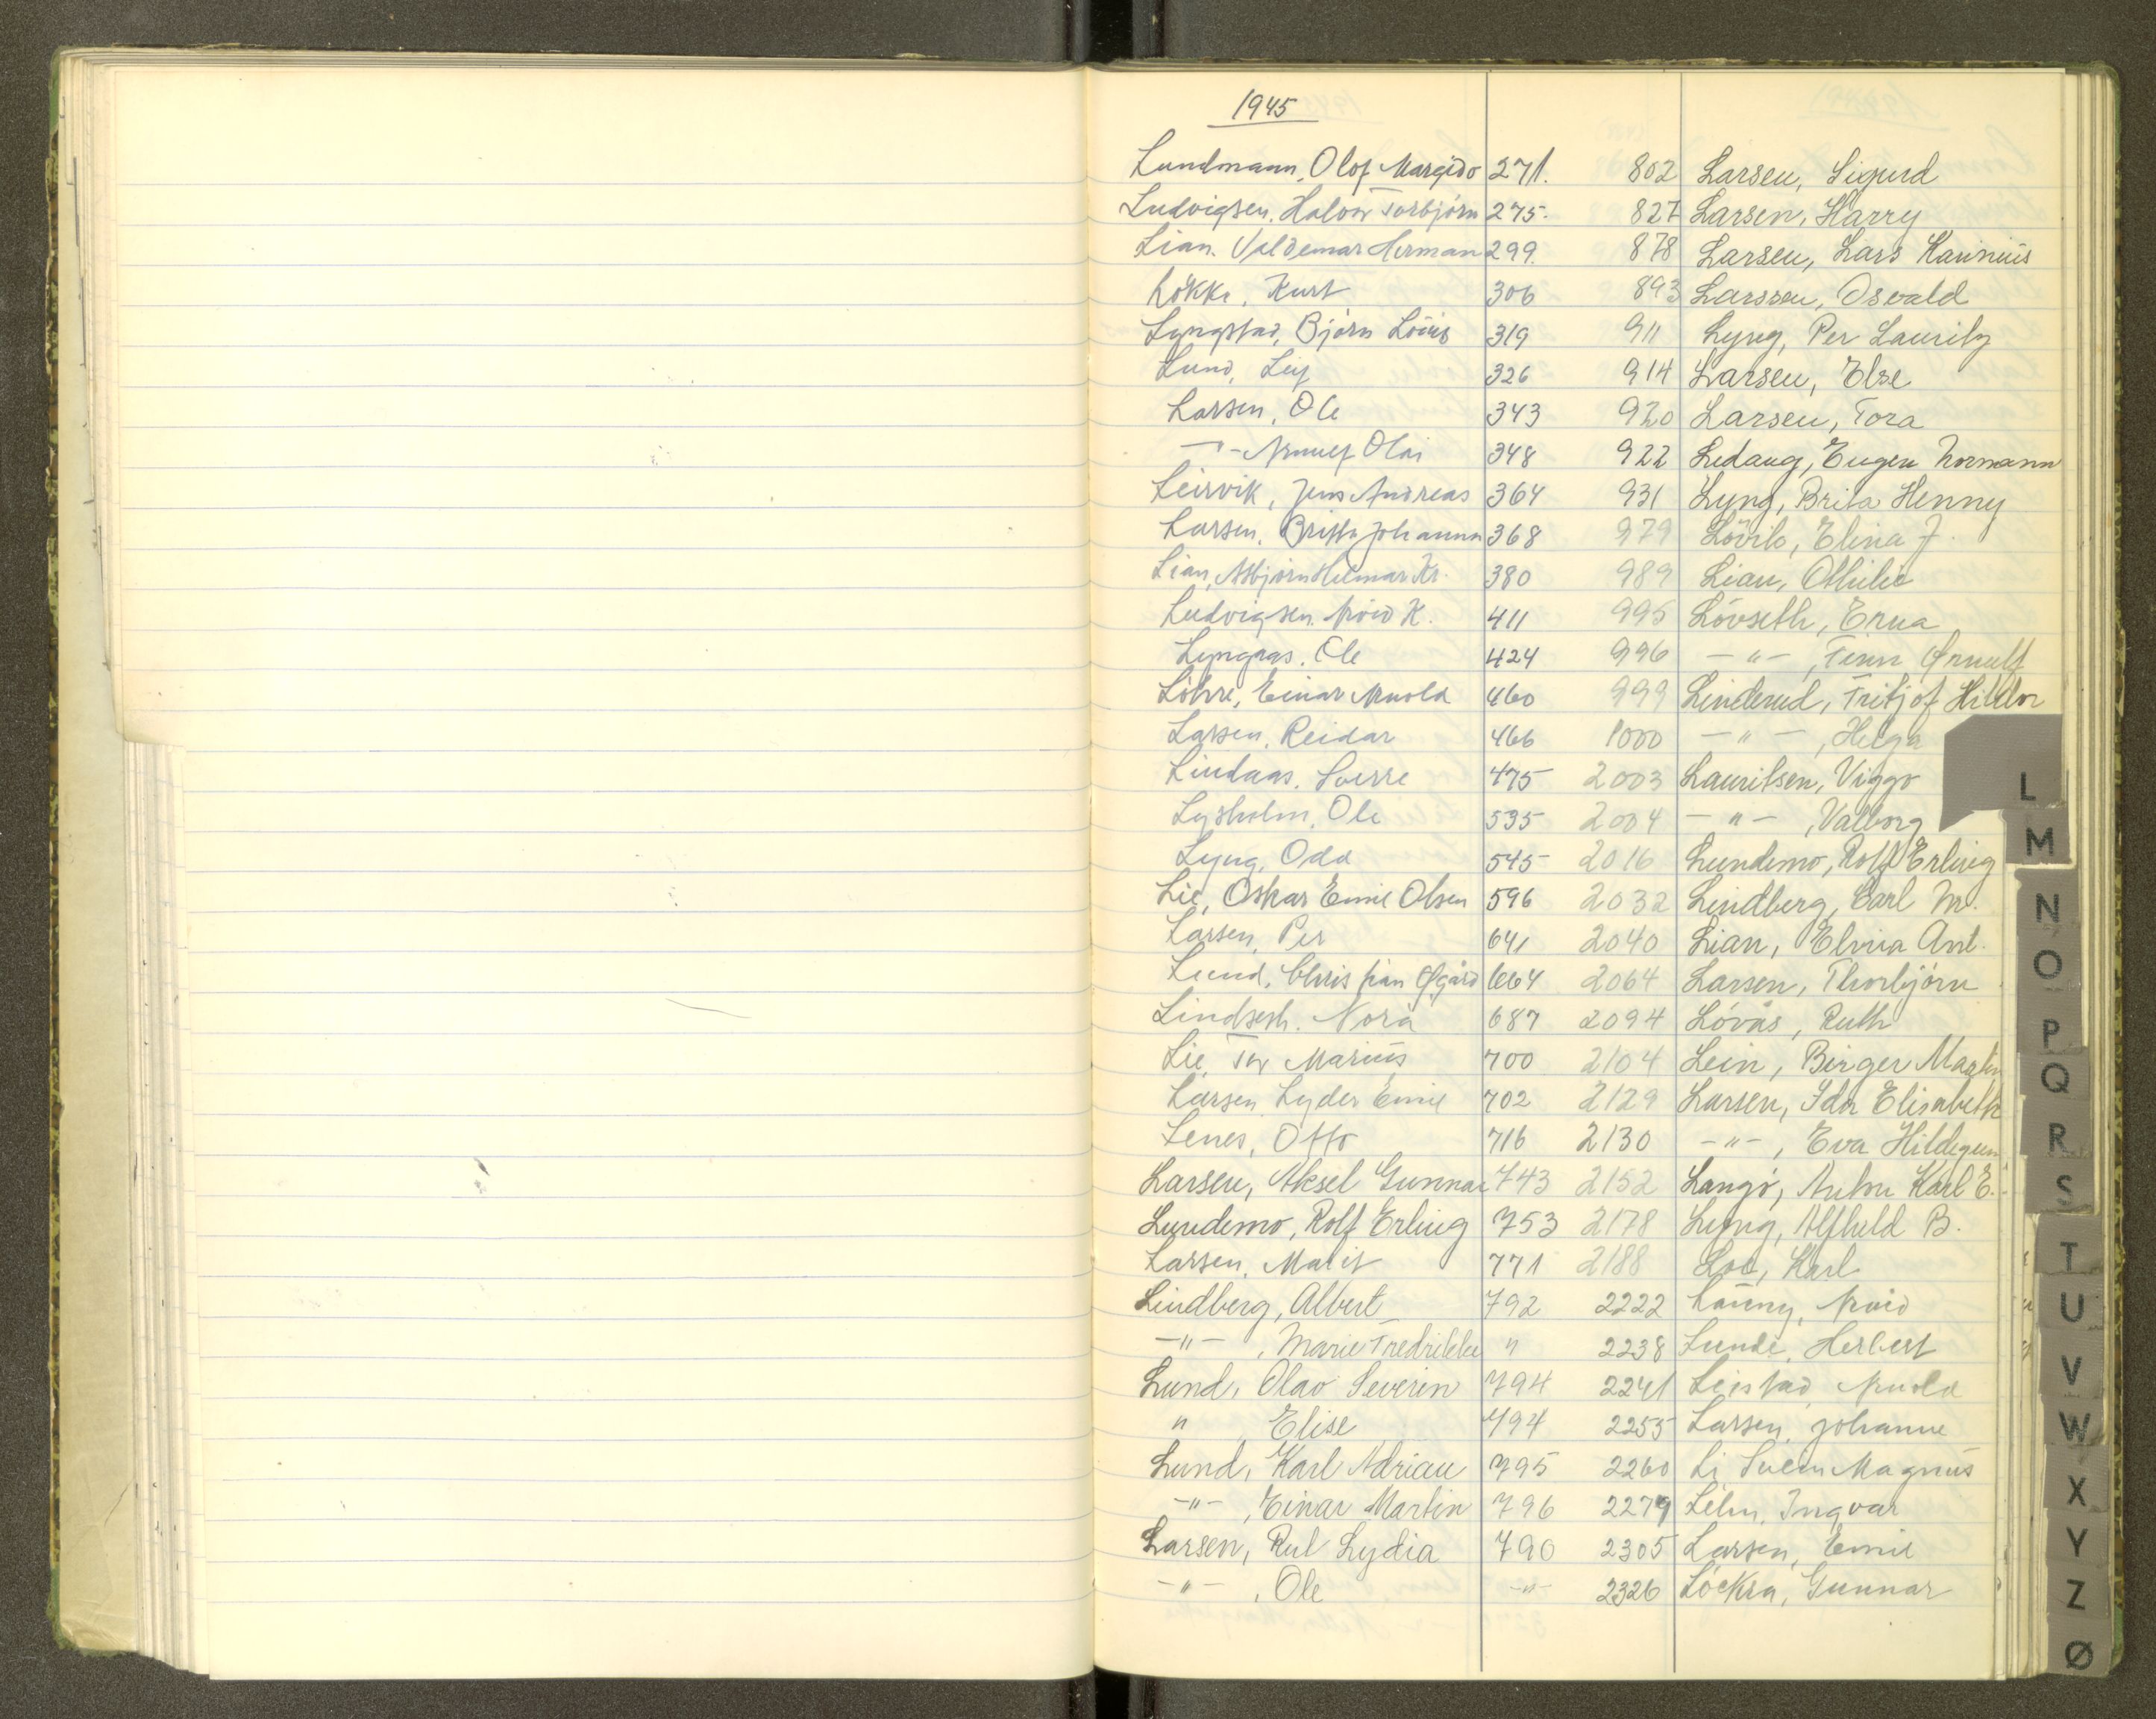 1945
Lundmann, Olof Margido 271. 802 Larsen, Sigurd
Ludvigsen, Halvor Torbjörn 275. 827 Larsen, Harry
Lian. Valdemar Herman 299. 878 Larsen, Lars Karinius
Lökke, Kurt 306 893 Larssen, Osvald
Lyngstad, Björn Louis 319 911 Lyng, Per Laurity
Lund, Leif 326 914 Larsen, Else
Larsen, Ole 343 920 Larsen, Tora
—"— Arnulf Olai 348 922 Ledang, Eugen Normann
Leirvik, Jens Andreas 364 931 Lyng, Brita Henny
Larsen, Johanna 368 979 Lövik, Elina J.
Lian, Asbjörn Hilmar Kr. 380 989 Lian, Othilie
Ludvigsen. Arvid K. 411 995 Lövseth, Erna
Lyngaas. Ole 424 996 —"—, Finn Ørnulf
Löhre, Einar Arnold 460 999 Linderud, Fritjof Hildor
Larsen, Reidar 466 1000 —"—, Helga
Lindaas. Sverre 475 2003 Lauritsen, Viggo
Lysholm, Ole 535 2004 —"—, Valborg
Lyng, Odd 545 2016 Lundemo, Rolf Erling
Lie, Oskar Emil Olsen 596 2032 Lindberg, Carl M.
Larsen, Per 641 2040 Lian, Elvira Ant.
Lund, Christian Øgård 664 2064 Larsen, Thorbjörn
Lindseth. Nora 687 2094 Lövås, Ruth
Lie, Tor Marius 700 2104 Lein, Birger Martin
Larsen, Lyder Emil 702 2129 Larsen, Ida Elisabeth
Lenes, Otto 716 2130 —"—, Eva Hildegun
Larsen, Aksel Gunnar 743 2152 Langö, Anton Karl E.
Lundemo, Rolf Erling 753 2178 Lyng, Alfhild B.
Larsen, Marit 771 2188 Loe, Karl
Lindberg, Albert 792 2222 Arvid
—"—, Marie Fredrikke " 2238 Lunde, Herbert
Lund, Olav Severin 794 2241 Leistad, Arnold
" Elise 794 2255 Larsen, Johanne
Lund, Karl Adrian 795 2260 Li Svein Magnus
—"—, Einar Martin 796 2279 Lehn, Ingvar
Larsen, Rut Lydia 790 2305 Larsen, Emil
—"—, Ole —"— 2326 Löckra, Gunnar
L
M
N
O
P
Q
R
S
T
U
V
W
X
Y
Z
Ø